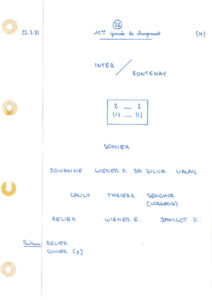 22
22.3.81 15ème journée de championnat (N)
INTER / FONTENAY
2 _ 2
(1) _ (1)
SOHIER
JOUANNE WIENER P. DA SILVA VALAIS
CAULY THRIERR SENGHOR
RELIER WIENER E. JANICOT P.
Buteurs: RELIER
SOHIER (P)